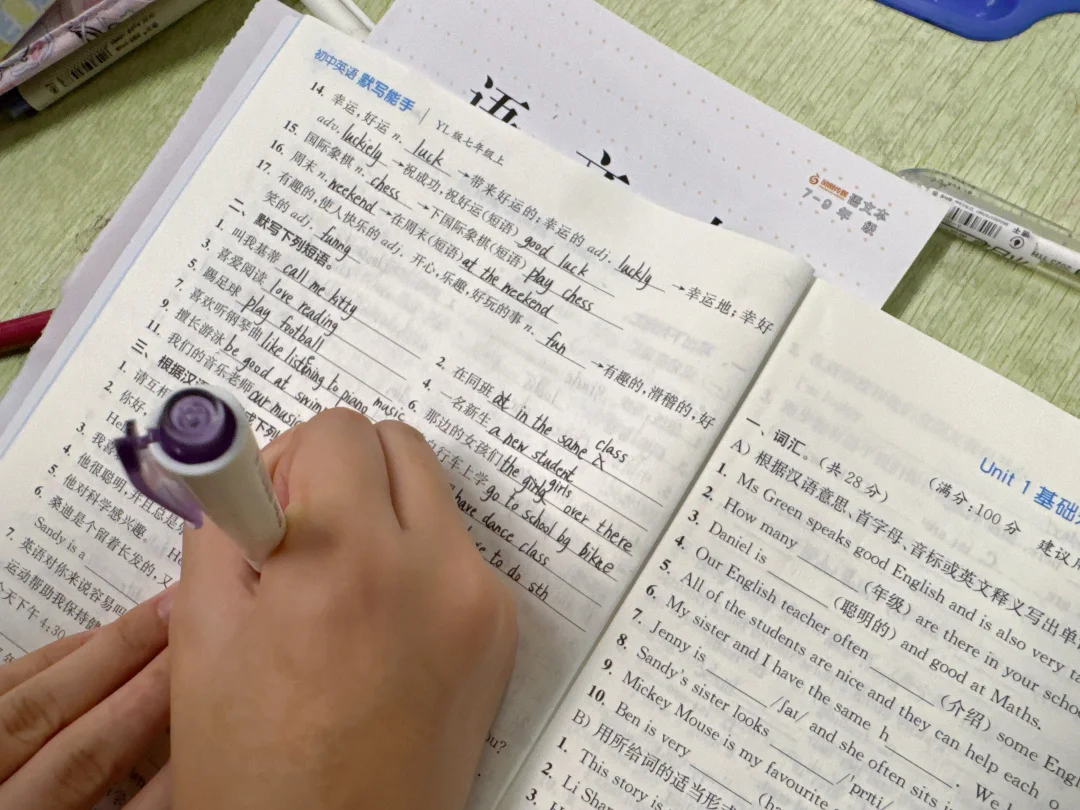 初中英语 默写能手 YL版七年级上
14. 幸运,好运 n. luck →带来好运的;幸运的 adj. luckly →幸运地;幸好
adv. luckiely →祝成功,祝好运(短语) good luck
15. 国际象棋 n. chess →下国际象棋(短语) play chess
16. 周末 n. weekend →在周末(短语) at the weekend
17. 有趣的,使人快乐的 adj. 开心,乐趣,好玩的事 n. fun →有趣的,滑稽的,好
笑的 adj. funny
二、默写下列短语。
1. 叫我基蒂 call me kitty
2. 在同班 at in the same class
3. 喜爱阅读 love reading
4. 一名新生 a new student
5. 踢足球 play football
6. 那边的女孩们 the girls over there
7. 喜欢听钢琴曲 like listening to piano music
自行车上学 go to school by bikae
9. 擅长游泳 be good at swim
have dance class
11. 我们的音乐老师 our music
to do sth
三、根据汉
1. 请互相
2. 你好,
Hel
3. 我喜
4. 他很聪明,并且总是
He
5. 他对科学感兴趣。
6. 桑迪是个留着长发的,又
Sandy is a
7. 英语对你来说容易吗
运动帮助我保持健
天下午 4:30
ou?
语文
课文本
7-9年级
Unit 1 基础
(满分:100 分 建议
一、词汇。(共 28 分)
A) 根据汉语意思、首字母、音标或英文释义写出单
1. Ms Green speaks good English and is also very ta
2. How many (年级) are there in your scho
3. Daniel is (聪明的) and good at Maths.
4. Our English teacher often (介绍) some Eng
5. All of the students are nice and they can help each o
6. My sister and I have the same h
7. Jenny is /ʃaɪ/ and she often sits i
8. Sandy's sister looks /ˈprɪti/
9. Mickey Mouse is my favourite
10. Ben is very
B) 用所给词的适当形式
1. This story is
2. Li Shan
3.